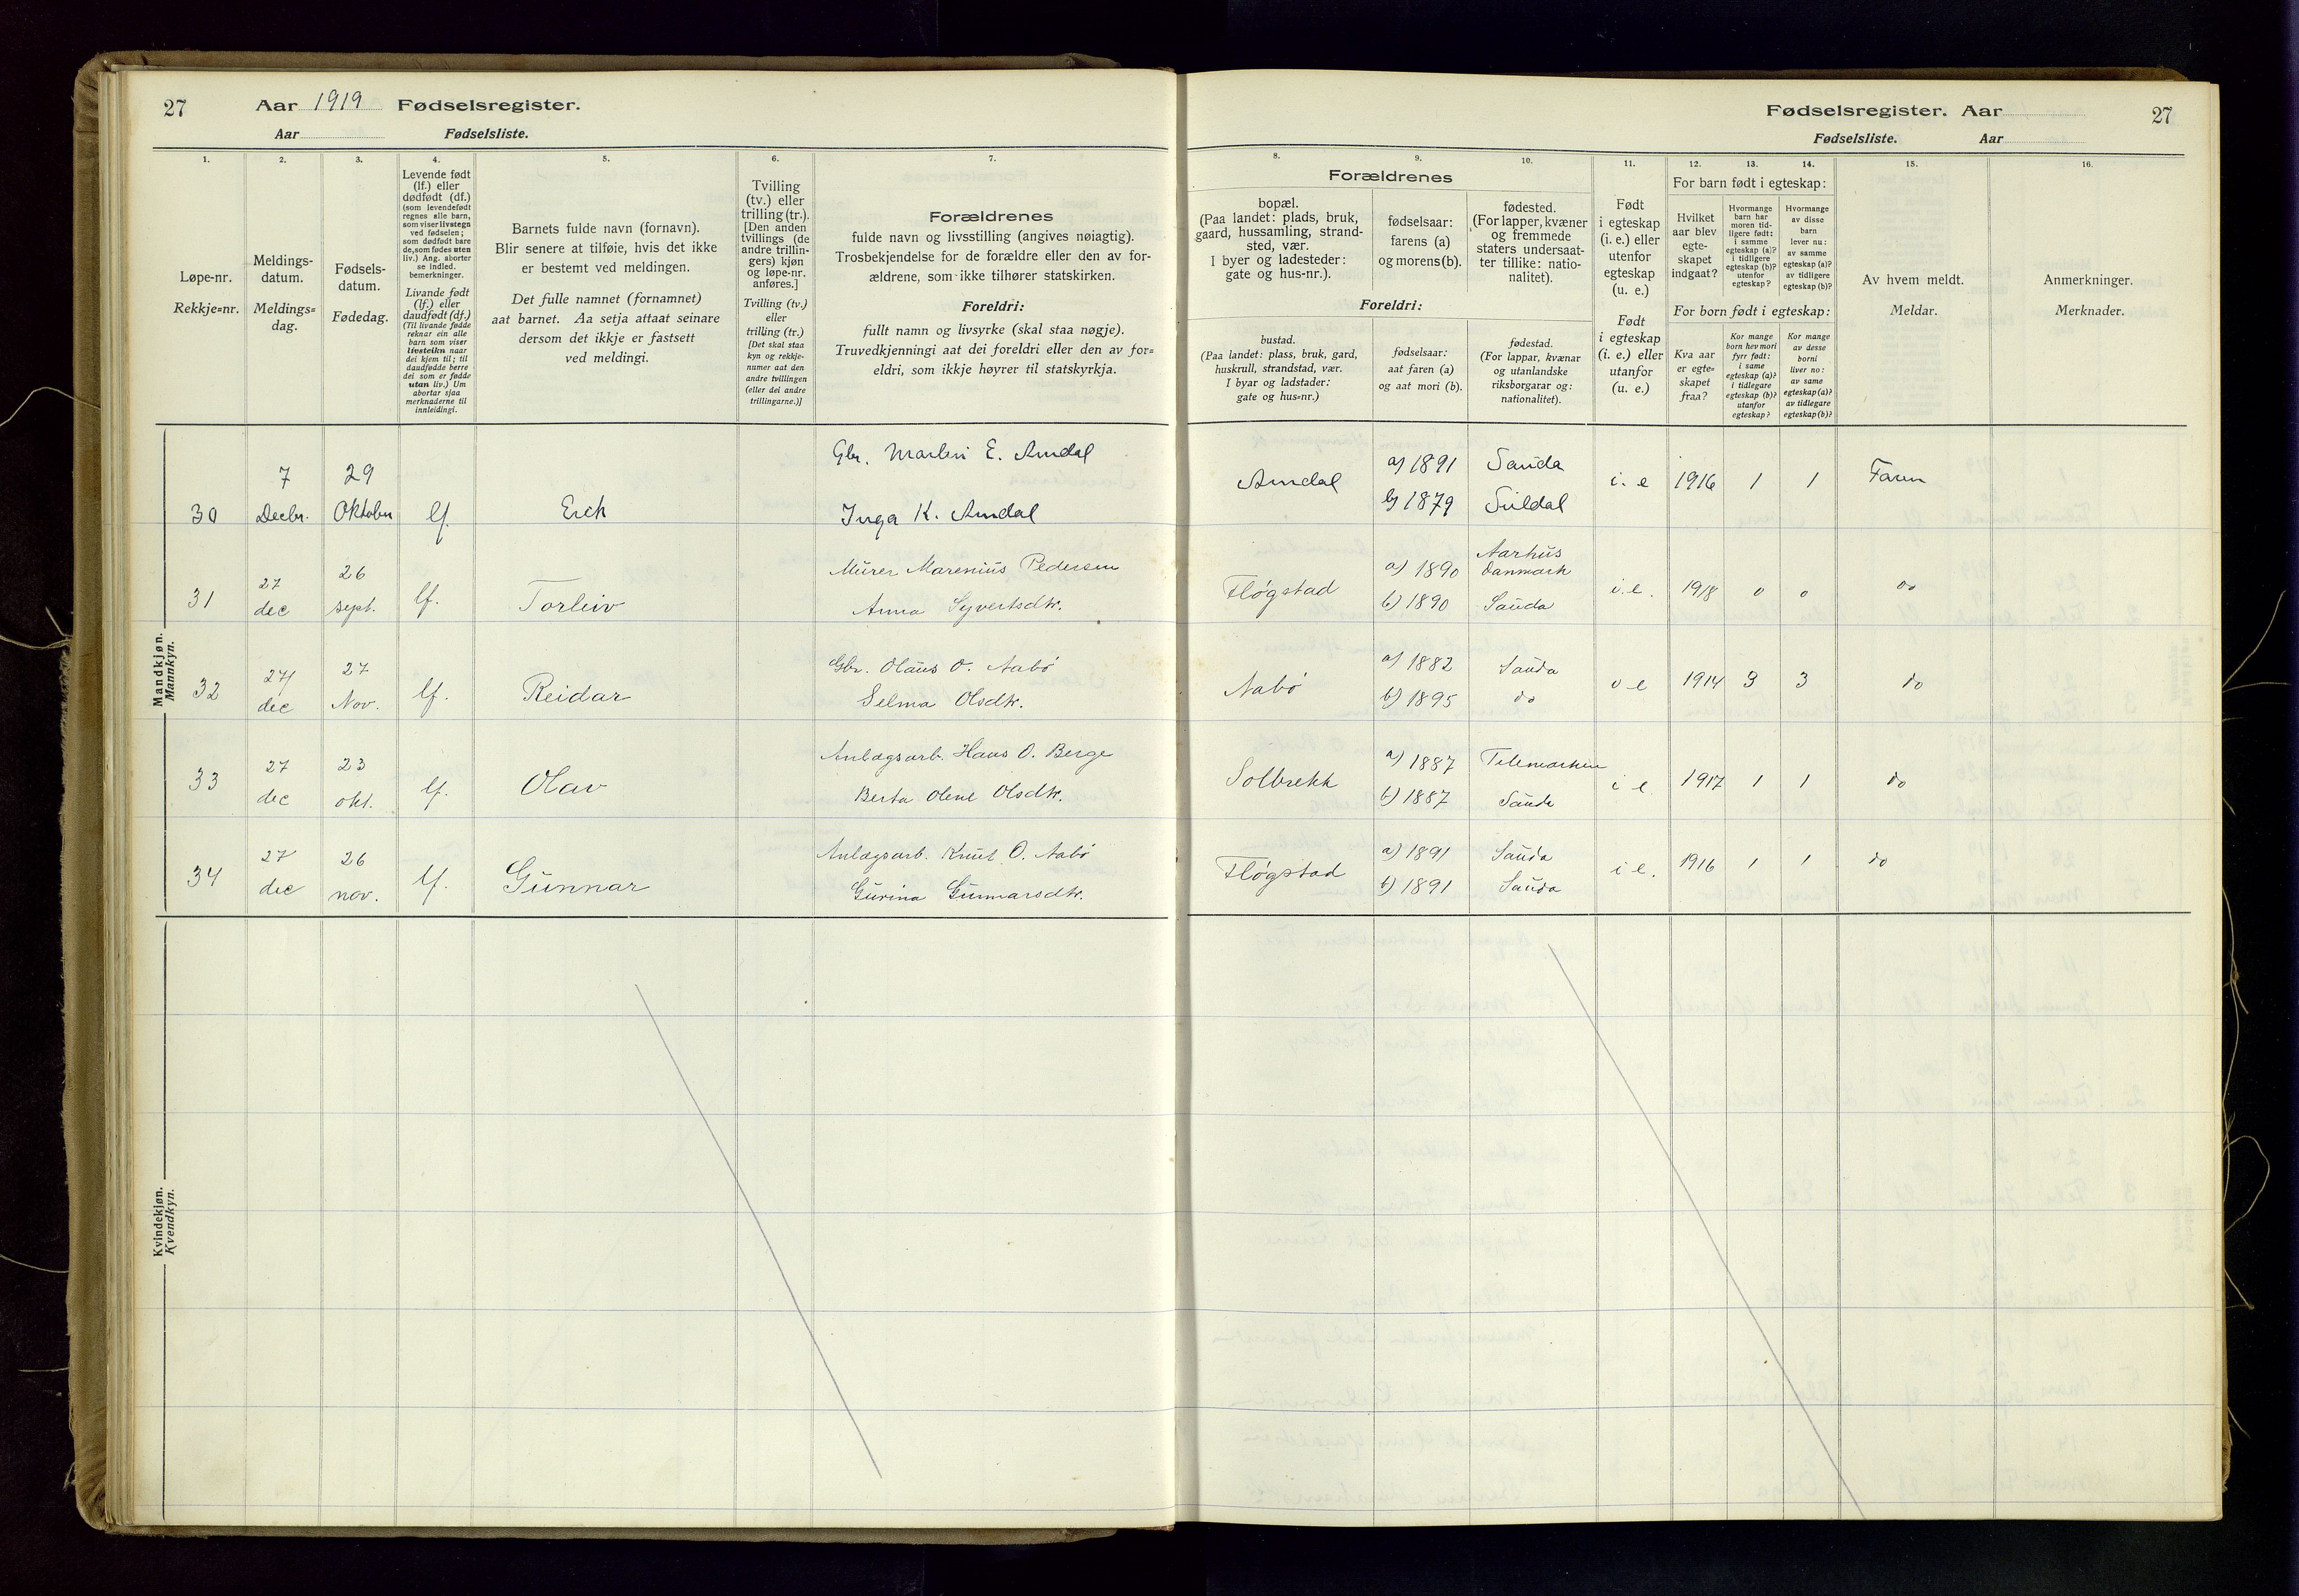 27
Aar 1919 Fødselsregister.
Aar Fødselsliste.
1.
2.
3.
4.
5.
6.
7.
Løpe-nr.
Rekkje=nr.
Meldings-
datum.
Meldings=
dag.
Fødsels-
datum.
Fødedag.
Levende født
(lf.) eller
dødfødt (df.)
(som levendefødt
regnes alle barn,
som viser livstegn
ved fødselen;
som dødfødt bare
de, som fødes uten
liv.) Ang. aborter
se indled.
bemerkninger.
Livande født
(lf.) eller
daudfødt (df.)
(Til livande fødde
reknar ein alle
barn som viser
livsteikn naar
dei kjem til; til
daudfødde berre
dei som er fødde
utan liv.) Um
abortar sjaa
merknaderne til
innleidingi.
Barnets fulde navn (fornavn).
Blir senere at tilføie, hvis det ikke
er bestemt ved meldingen.
Det fulle namnet (fornamnet)
aat barnet. Aa setja attaat seinare
dersom det ikkje er fastsett
ved meldingi.
Tvilling
(tv.) eller
trilling (tr.).
[Den anden
tvillings (de
andre trillin-
gers) kjøn
og løpe-nr.
anføres.]
Tvilling (tv.)
eller
trilling (tr.)
[Det skal staa
kyn og rekkje-
numer aat den
andre tvillingen
(eller dei andre
trillingarne.)]
Forældrenes
fulde navn og livsstilling (angives nøiagtig).
Trosbekjendelse for de forældre eller den av for-
ældrene, som ikke tilhører statskirken.
Foreldri:
fullt namn og livsyrke (skal staa nøgje).
Truvedkjenningi aat dei foreldri eller den av for=
eldri, som ikkje høyrer til statskyrkja.
Mandkjøn.
Mannkyn.
30
7
Decbr.
29
Oktober
lf.
Erik
Gbr. Martin E. Amdal
Inga K. Amdal
31
27
dec
26
sept.
lf.
Torleiv
Murer Marenius Pedersen
Anna Syvertsdtr.
32
27
dec
27
Nov.
lf.
Reidar
Gbr. Olaus O. Aabö
Selma Olsdtr.
33
27
dec
23
okt.
lf.
Olav
Anlægsarb. Hans O. Berge
Berta Olene Olsdtr.
34
27
dec
26
nov.
lf.
Gunnar
Anlægsarb. Knut O. Aabö
Gurina Gunnarsdtr.
Kvindekjøn.
Kvendkyn.
Fødselsregister. Aar
27
Fødselsliste. Aar
8.
9.
10.
11.
12.
13.
14.
15.
16.
Forældrenes
bopæl.
(Paa landet: plads, bruk,
gaard, hussamling, strand-
sted, vær.
I byer og ladesteder:
gate og hus-nr.).
fødselsaar:
farens (a)
og morens (b).
fødested.
(For lapper, kvæner
og fremmede
staters undersaat-
ter tillike: natio-
nalitet).
Foreldri:
bustad.
(Paa landet: plass, bruk, gard,
huskrull, strandstad, vær.
I byar og ladstader:
gate og hus=nr.)
fødselsaar:
aat faren (a)
og aat mori (b).
fødestad.
(For lappar, kvænar
og utanlandske
riksborgarar og:
nationalitet).
Født
i egteskap
(i. e.) eller
utenfor
egteskap
(u. e.)
Født
i egteskap
(i. e.) eller
utanfor
(u. e.)
For barn født i egteskap:
Hvilket
aar blev
egte-
skapet
indgaat?
Hvormange
barn har
moren tid-
ligere født:
i samme
egteskap (a)?
i tidligere
egteskap (b)?
utenfor
egteskap?
Hvormange
av disse
barn
lever nu:
av samme
egteskap (a)?
av tidligere
egteskap (b)?
For born født i egteskap:
Kva aar
er egte=
skapet
fraa?
Kor mange
born hev mori
fyrr født:
i same
egteskap (a)?
i tidlegare
egteskap (b)?
utanfor
egteskap?
Kor mange
av desse
borni
liver no:
av same
egteskap (a)?
av tidlegare
egteskap (b)?
Av hvem meldt.
Meldar.
Anmerkninger.
Merknader.
Amdal
a) 1891
b) 1879
Sauda
Suldal
i. e
1916
1
1
Faren
Fløgstad
a) 1890
b) 1890
Aarhus
Danmark
Sauda
i. e.
1918
0
0
do
Aabö
a) 1882
b) 1895
Sauda
do
1914
3
3
do
Solbrekk
a) 1887
b) 1887
Telemarken
Sauda
i e
1917
1
1
do
Fløgstad
a) 1891
b) 1891
Sauda
Sauda
i e.
1916
1
1
do